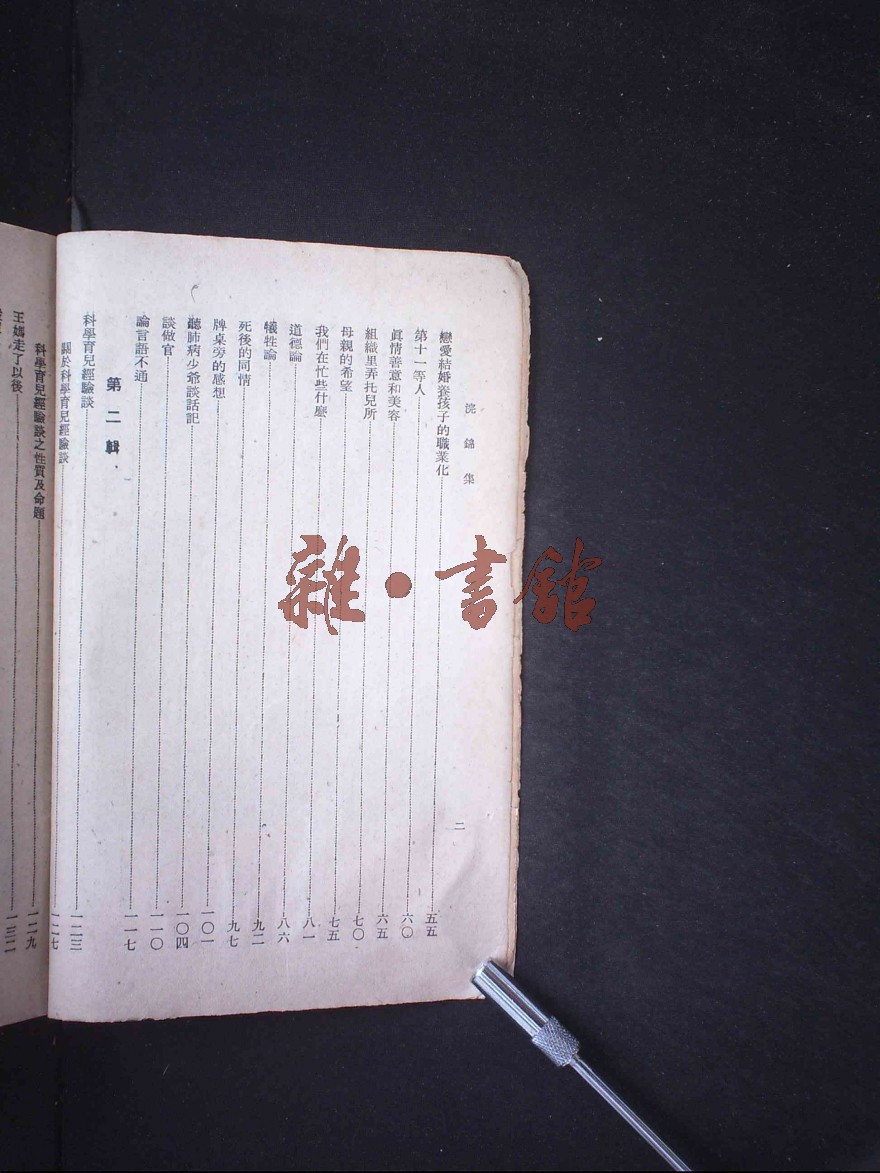 浣錦集
二
戀愛結婚養孩子的職業化 五五
第十一等人 六〇
眞情善意和美容 六五
組織里弄托兒所 七〇
母親的希望 七五
我們在忙些什麼 八一
道德論 八六
犧牲論 九二
死後的同情 九七
牌桌旁的感想 一〇一
聽肺病少爺談話記 一〇四
談做官 一一〇
論言語不通 一一七
第二輯
科學育兒經驗談 一二三
關於科學育兒經驗談 一二七
科學育兒經驗談之性質及命題 一二九
王媽走了以後 一三二
雜·書館